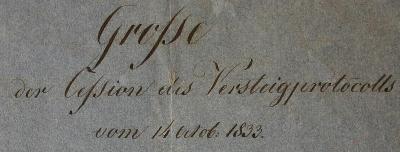 Grosse
der Cession des Versteigprotocolls
vom 14 Octob. 1833.